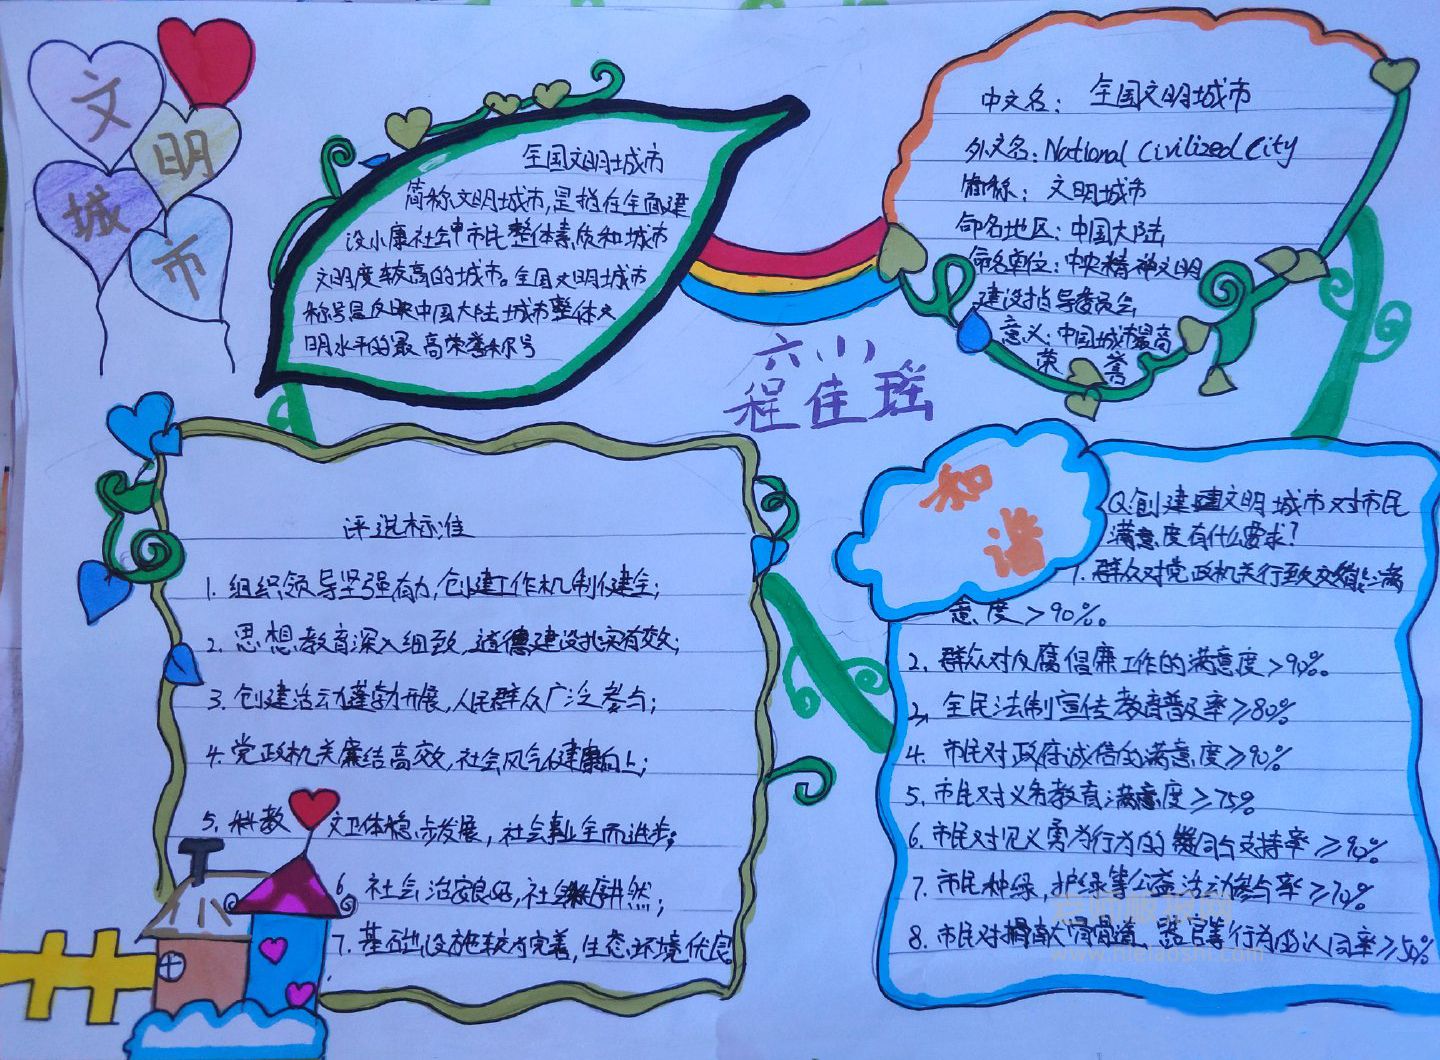 文
明
城
市
全国文明城市
简称文明城市,是指在全面建
设小康社会中市民整体素质和城市
文明度较高的城市。全国文明城市
称号是反映中国大陆城市整体文
明水平的最高荣誉称号
中文名：全国文明城市
外文名：National Civilized City
简称：文明城市
命名地区：中国大陆
命名单位：中央精神文明
建设指导委员会
意义：中国城市最高
荣誉
六(小)
程佳瑶
评选标准
1. 组织领导坚强有力,创建工作机制健全;
2. 思想教育深入细致,道德建设扎实有效;
3. 创建活动蓬勃开展,人民群众广泛参与;
4. 党政机关廉洁高效,社会风气健康向上;
5. 科教文卫体稳步发展,社会事业全面进步;
6. 社会治安良好,社会秩序井然;
7. 基础设施较为完善,生态环境优良
和
谐
Q:创建建文明城市对市民
满意度有什么要求?
1. 群众对党政机关行政效能的满
意度>90%。
2. 群众对反腐倡廉工作的满意度>90%。
3. 全民法制宣传教育普及率≥80%
4. 市民对政府诚信的满意度≥90%
5. 市民对义务教育满意度≥75%
6. 市民对见义勇为行为的赞同与支持率≥90%
7. 市民种绿,护绿等公益活动参与率≥70%
8. 市民对捐献骨髓、器官等行为的认同率≥50%
老师板报网